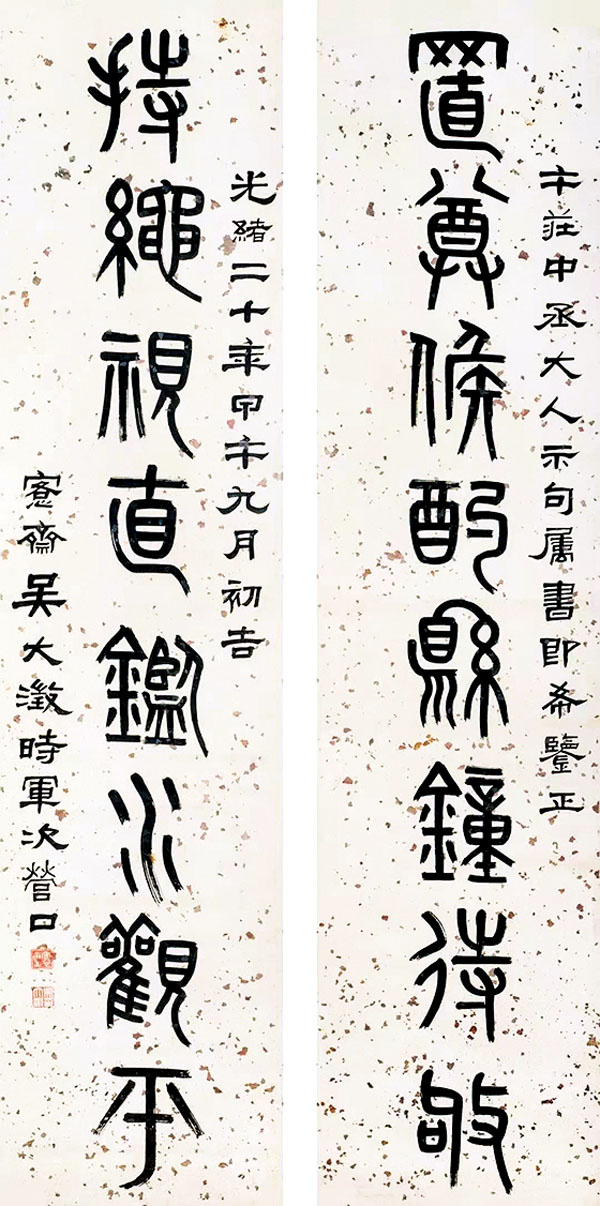 午莊中丞大人示句属書即希鑒正
置尊候酌縣鐘待敂
光緒二十年甲午九月初吉
持繩視直鑑水觀平
愙齋吳大澂時軍次營口